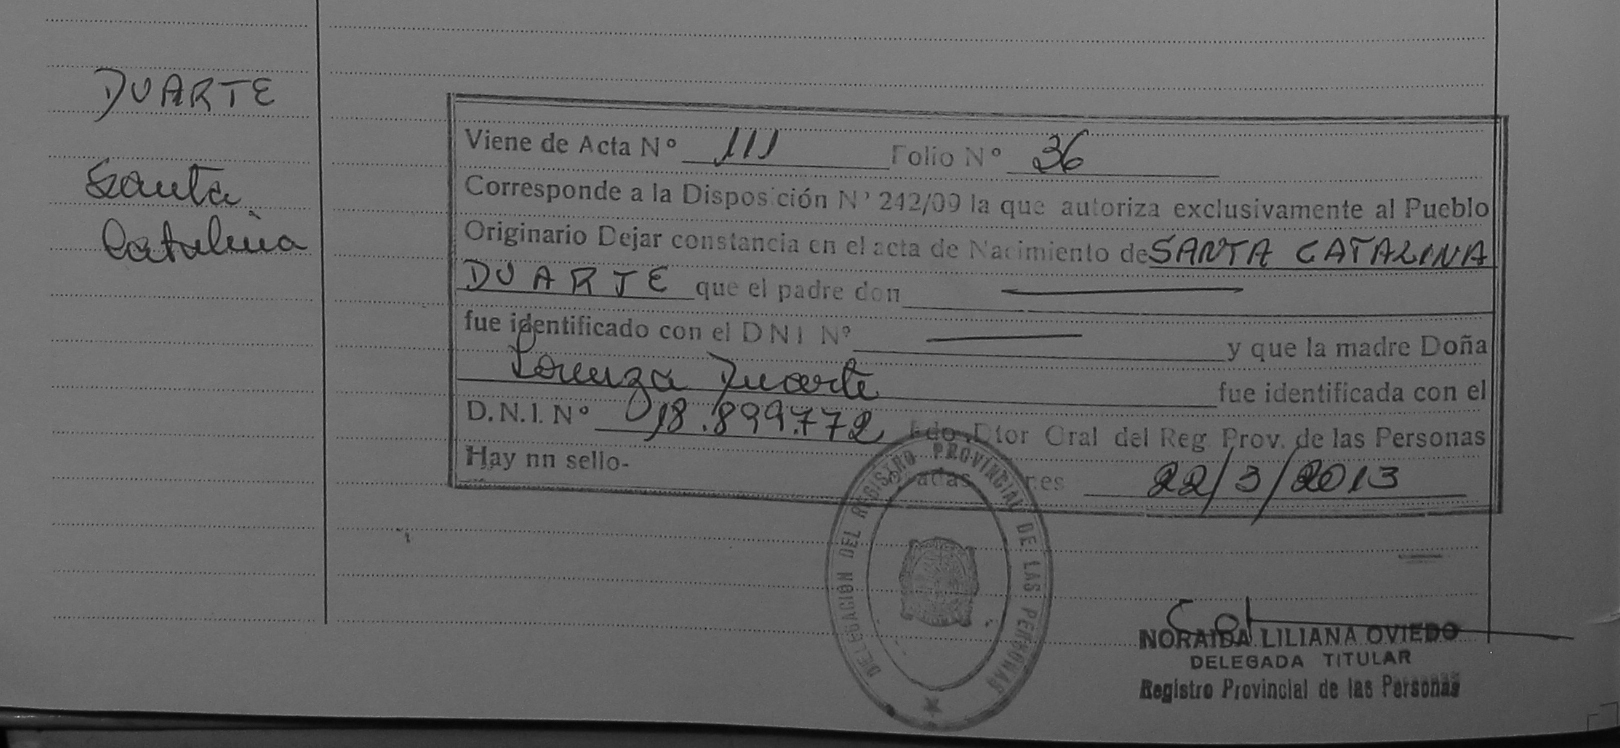 DUARTE
Santa
Catalina
Viene de Acta Nº 111 Folio Nº 36
Corresponde a la Disposición Nº 242/09 la que autoriza exclusivamente al Pueblo
Originario Dejar constancia en el acta de Nacimiento de SANTA CATALINA
DUARTE que el padre don
fue identificado con el D N I Nº y que la madre Doña
Lorenza Duarte fue identificada con el
D.N.I. Nº 18.899.772 Fdo. Dtor Gral del Reg Prov. de las Personas
Hay nn sello- 22/3/2013
DELEGACIÓN DEL REGISTRO PROVINCIAL DE LAS PERSONAS
NORAIDA LILIANA OVIEDO
DELEGADA TITULAR
Registro Provincial de las Personas